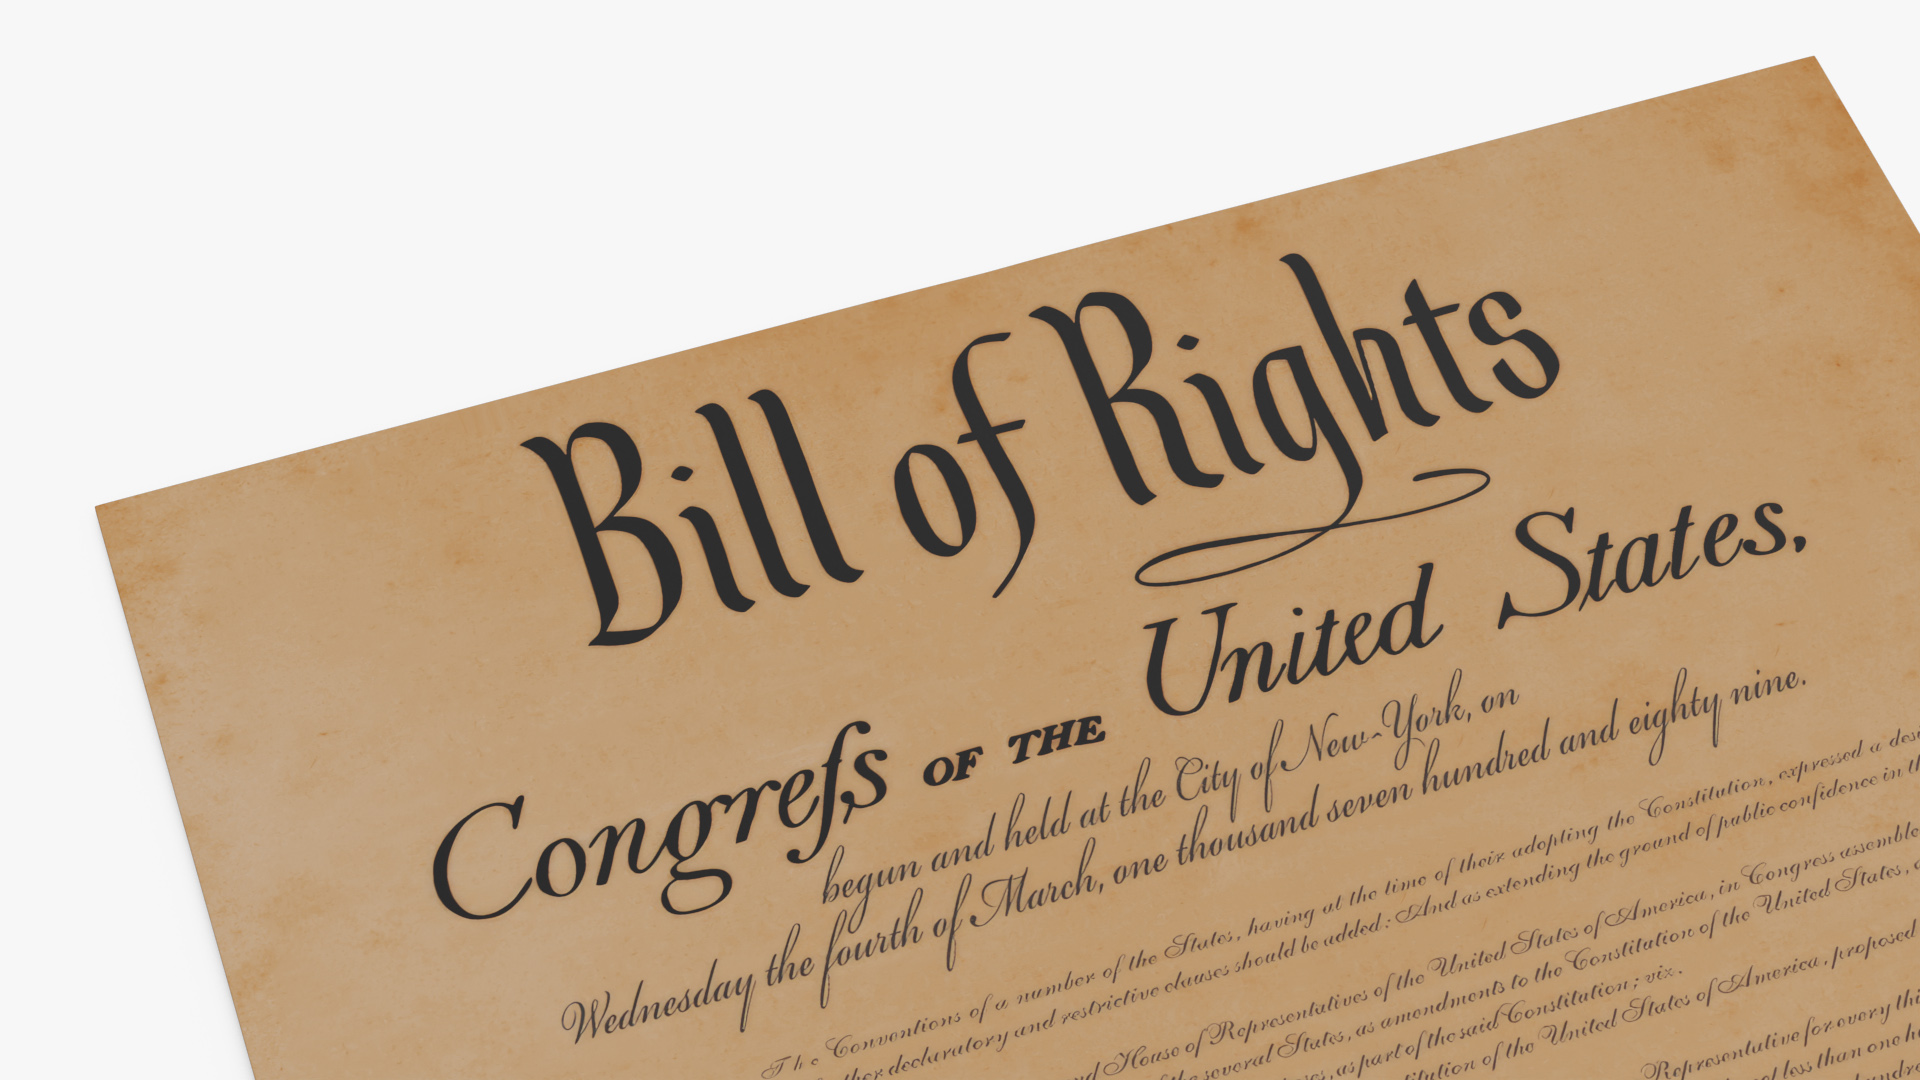 Bill of Rights
Congreſs OF THE United States,
begun and held at the City of New-York, on
Wednesday the fourth of March, one thousand seven hundred and eighty nine.
The Conventions of a number of the States, having at the time of their adopting the Constitution, expressed a
declaratory and restrictive clauses should be added: And as extending the ground of public confidence in
House of Representatives of the United States of America, in Congress
several States, as amendments to the Constitution of the United States,
as part of the said Constitution; viz.
of the United States of America, proposed
Representative for every
less than one